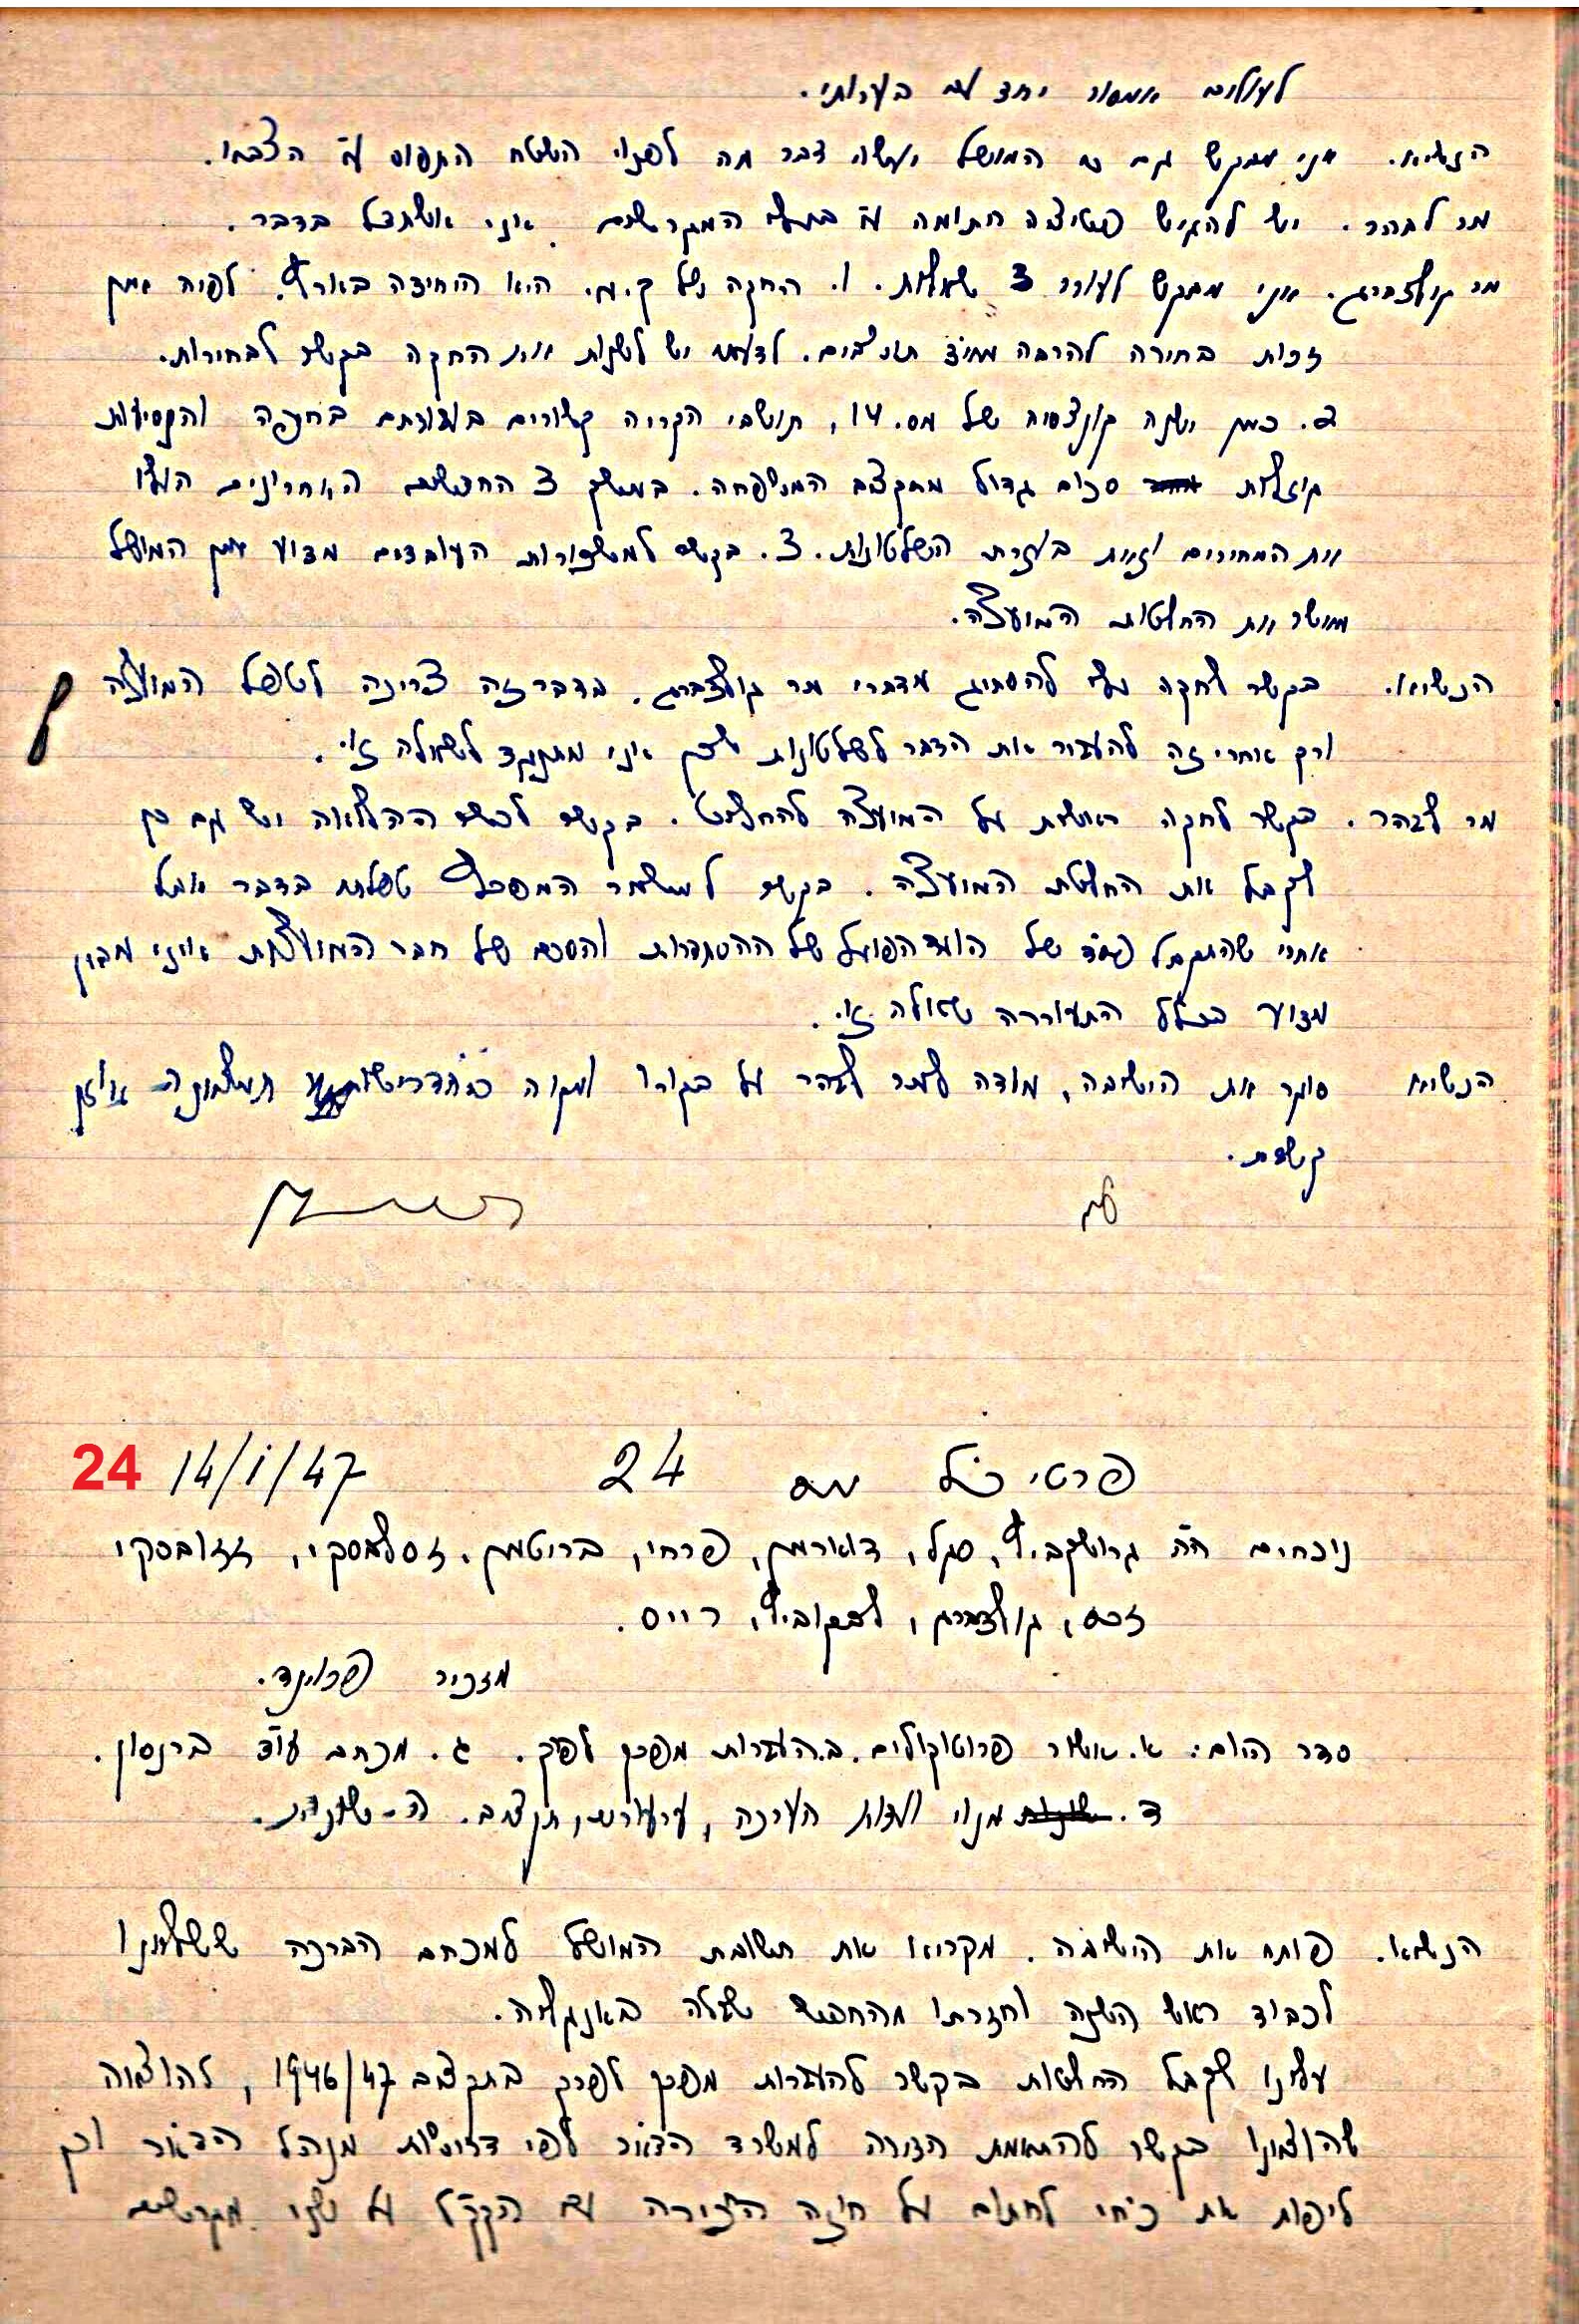 לעולים אמסור יחד עם הערותי.
הנשיא. אני מבקש גם כי המושל יעשה דבר מה לפנוי השטח התפוס ע"י הצבא.
מר לבהר. יש להגיש פטיציה חתומה ע"י בעלי המגרשים. אני אשתדל בדבר.
מר גולדברג. אני מבקש לעורר 3 שאלות. 1. החקה של ק.מ. היא היחידה בארץ. לפיה אין
זכות בחירה להרבה מאוד תושבים. לדעתי יש לשנות את החקה בקשר לבחירות.
2. כאן ישנה קונצסיה של מס. 14, תושבי הקריה קשורים בעבודתם בחיפה והנסיעות
גוזלות סכום גדול מתקציב המשפחה. במשך 3 החדשים האחרונים העלו
את המחירים וזאת בעזרת השלטונות. 3. בקשר למשכורות העובדים מדוע אין המושל
מאשר את החלטות המועצה.
הנשיא. בקשר לחקה עלי להסתיג מדברי מר גולדברג. בדבר זה צריכה לטפל המועצה
ורק אחרי זה להעביר את הדבר לשלטונות לכן אני מתנגד לשאלה זו.
מר לבהר. בקשר לחקה ראשית על המועצה להחליט. בקשר לכשר ההלואה יש גם כן
לקבל את החלטת המועצה. בקשר למשמר המספרי טפלתי בדבר אבל
אחרי שהתקבל פס"ד של הועד הפועל של ההסתדרות והסכם של חבר המועצות איני מבין
מדוע בכלל התעוררה שאלה זו.
הנשיא סוגר את הישיבה, מודה למר לבהר על בקורו ומקוה כי הדרישות תמצאנה אוזן
קשבת.
24 14/I/47 פרטי כל מס 24
נוכחים ה"ה גרושקביץ, סגל, דוארמן, פרחי, ברוטמן, זסלבסקי, זזובסקי
זכס, גולדברג, לבקוביץ, רייס.
מזכיר פרוינד.
סדר היום: א. אשור פרוטוקולים. ב. העברות מפרק לפרק. ג. מכתב עו"ד ברנסון.
ד. מנוי ועדות הערכה, ערעורים, תקציב. ה - שונות.
הנשיא. פותח את הישיבה. מקריא את תשובת המושל למכתב הברכה ששלחנו
לכבוד ראש השנה וחזרתו מהחופש שעלה באנגליה.
עלינו לקבל החלטות בקשר להעברות מפרק לפרק בתקציב 1946/47, להוצאה
שהוצאנו בקשר להתאמת הדירה למשרד הדאר לפי דרישות מנהל הדאר וכן
ליפות את כחי לחתום על חוזה החכירה עם הקק"ל על שני מגרשים